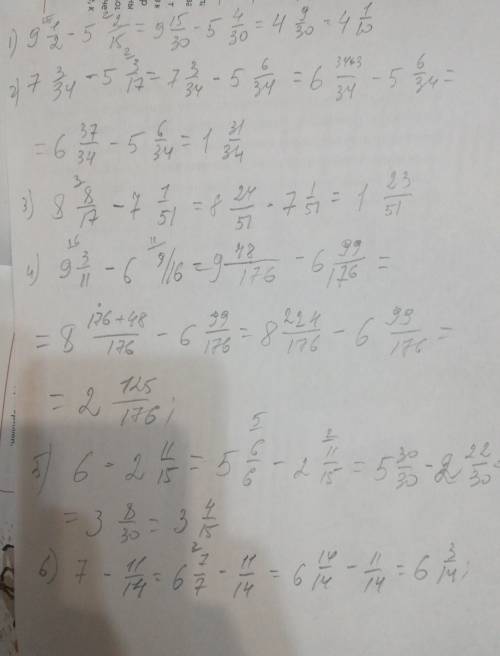 1) 9 1/2 - 5 2/15 = 9 15/30 - 5 4/30 = 4 9/30 = 4 1/10
2) 7 3/34 - 5 3/17 = 7 3/34 - 5 6/34 = 6 34+3/34 - 5 6/34 =
= 6 37/34 - 5 6/34 = 1 31/34
3) 8 8/17 - 7 1/51 = 8 24/51 - 7 1/51 = 1 23/51
4) 9 3/11 - 6 9/16 = 9 48/176 - 6 99/176 =
= 8 176+48/176 - 6 99/176 = 8 224/176 - 6 99/176 =
= 2 125/176;
5) 6 - 2 11/15 = 5 6/6 - 2 11/15 = 5 30/30 - 2 22/30 =
= 3 8/30 = 3 4/15
6) 7 - 11/14 = 6 7/7 - 11/14 = 6 14/14 - 11/14 = 6 3/14;